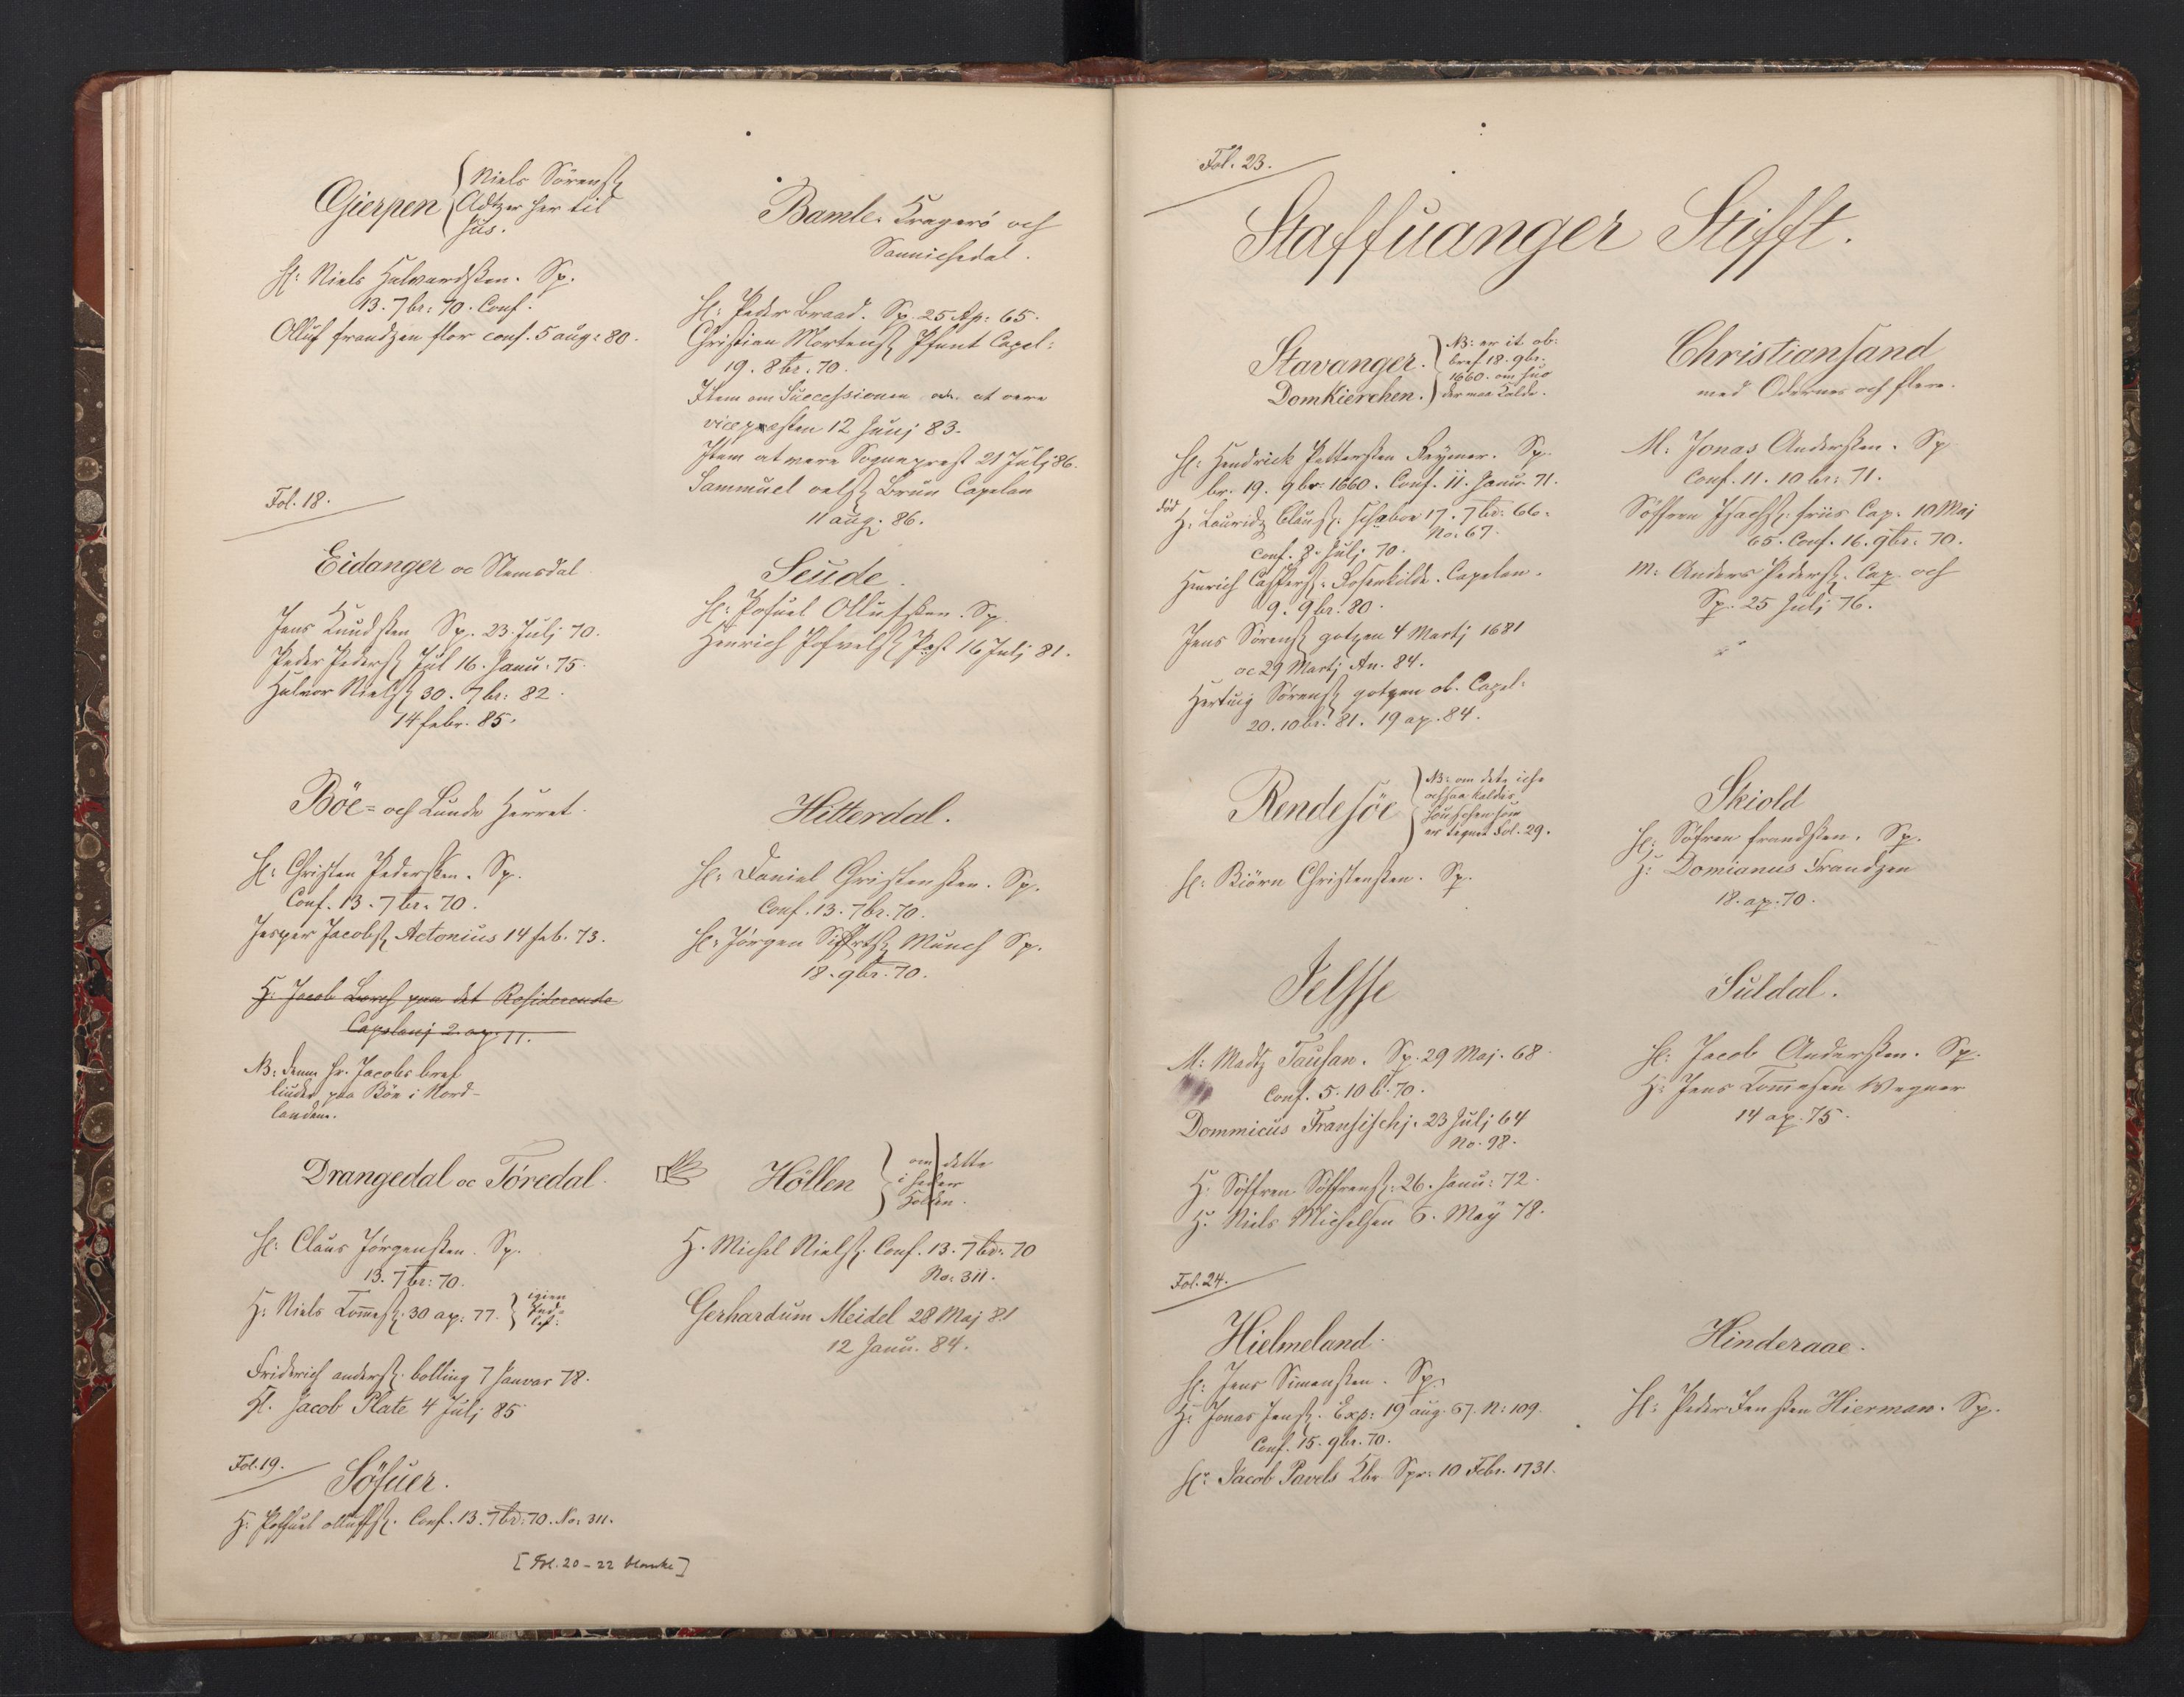 Gierpen
Niels Sörensß
Adtzer her til
hus.
H: Niels Halvordsßen. Sp.
13. 7br: 70. Conf.
Olluf frandzen flor conf. 5 aug: 80.
Fol. 18.
Eidanger oc Slemsdal
Jens Knudsßen Sp. 23. Julj 70.
Peder Pedersß Jul 16. Janu: 75.
Halvor Nielsß 30. 7br: 82.
14 febr. 85.
Böe= och Lunde Herret.
H: Christen Pedersßen. Sp.
Conf. 13. 7br. 70.
Jesper Jacobsß Actonius 14 feb. 73.
H: Jacob Lorch paa det Residerende
Capelanj 2. ap. 77.
NB: denne Hr. Jacobs bref
liuder paa Böe i Nord-
landene.
Drangedal oc Töredal.
H: Claus Jörgensßen. Sp.
13. 7br: 70.
H: Niels Tommesß: 30 ap: 77.
igien
Friderich andersß. bolling 7 Januar 78.
H. Jacob Plate 4 Julj 85
Fol. 19.
Söfuer.
H: Pofuel olluffsß. Conf. 13. 7br: 70. No: 311.
[Fol. 20-22 blanke]
Bamle. Kragerö och
Sannichedal.
H: Peder Braad. Sp. 25 Ap: 65.
Christian Mortensß Pfunt Capel:
19. 8br. 70.
Item om Successionen och at vere
vicepræsten 12 Junj 83.
Item at være Sognepræst 21 Julj 86.
Sammuel oelsß Brun Capelan
11 aug. 86.
Seude.
H: Pofuel Ollufsßen. Sp.
Henrich Pofvelsß Post 16 Julj 81.
Hitterdal.
H: Daniel Christensßen. Sp.
Conf. 13. 7br. 70.
H: Jörgen Siffrtsß Munch Sp.
18. 9br. 70.
Höllen
om dette
i heder
Holden.
H. Michel Nielsß. Conf. 13. 7br: 70
No: 311.
Gerhardum Meidel 28 Maj 81
12 Janu. 84.
Fol. 23.
Staffuanger Stifft.
Stavanger.
DomKierchen.
NB: er it ob:
bref 18. 9br.
1660. om huo
der maa kalde.
H: Hendrick Pettersßen Reymer. Sp.
br. 19. 9br: 1660. Conf. 11. Janu: 71.
död
H. Lauridz Clausß. Schaboe 17. 7br: 66.
No: 67.
conf. 8. Julj 70.
Henrich Caspersß: Rosenkilde. Capelan.
9. 9br. 80.
Jens Sörensß gotzen 4 Martj 1681
oc 29 Martj An. 84.
Hertuig Sörensß gotzen ob. Capel:
20. 10br. 81. 19 ap. 84.
Rendesöe
NB: om dete iche
ochsaa kaldis
er tegnet Fol. 29.
H: Biörn Christensßen. Sp.
Jelsse
M: Madtz Tausan. Sp. 29 Maj. 68
Conf. 5. 10b. 70.
Dommicus Fransischj. 23 Julj 64
No. 98.
H. Söffren Söffrensß: 26. Janu: 72.
H. Niels Michelsen 6. Maÿ 78.
Fol. 24.
Hielmeland.
H: Jens Simensßen. Sp.
H: Jonas Jensß. Exp: 19 aug. 67. N: 109.
Conf. 15. 9br. 70.
Hr Jacob Pavels Kbr Spr: 10 Febr. 1731.
Christiansand
med Oddernes och flere.
M: Jonas Andersßen. Sp
Conf. 11. 10br: 71.
Söffren Isachsß: friis Cap. 10 Maj
65. Conf. 16. 9br: 70.
M: Anders Pedersß. Cap och
Sp. 25 Julj 76.
Skiold
H: Söfren frandsßen. Sp.
H: Domianus Frandzen
18. ap. 70.
Suldal.
H: Jacob Andersßen. Sp.
H: Jens Tommesen Wegner
14 ap. 75.
Hinderaae.
H: Peder Jensßen Hierman. Sp.